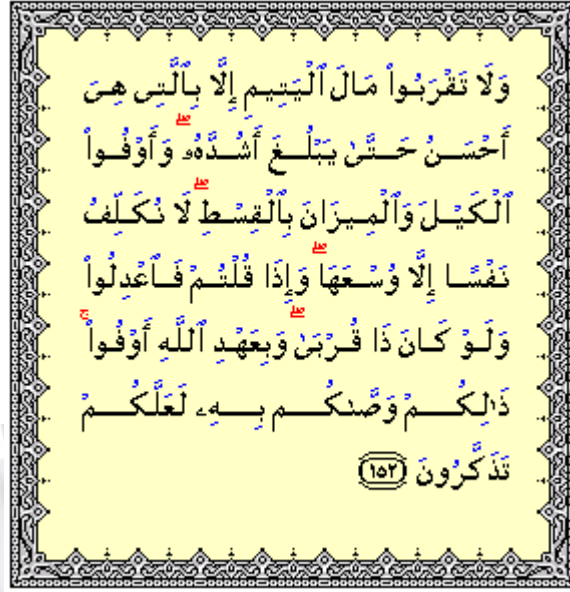 وَلَا تَقْرَبُوا۟ مَالَ ٱلْيَتِيمِ إِلَّا بِٱلَّتِى هِىَ
أَحْسَنُ حَتَّىٰ يَبْلُغَ أَشُدَّهُۥ ۖ وَأَوْفُوا۟
ٱلْكَيْلَ وَٱلْمِيزَانَ بِٱلْقِسْطِ ۖ لَا نُكَلِّفُ
نَفْسًا إِلَّا وُسْعَهَا ۖ وَإِذَا قُلْتُمْ فَٱعْدِلُوا۟
وَلَوْ كَانَ ذَا قُرْبَىٰ ۖ وَبِعَهْدِ ٱللَّهِ أَوْفُوا۟ ۚ
ذَٰلِكُمْ وَصَّىٰكُم بِهِۦ لَعَلَّكُمْ
تَذَكَّرُونَ ١٥٢